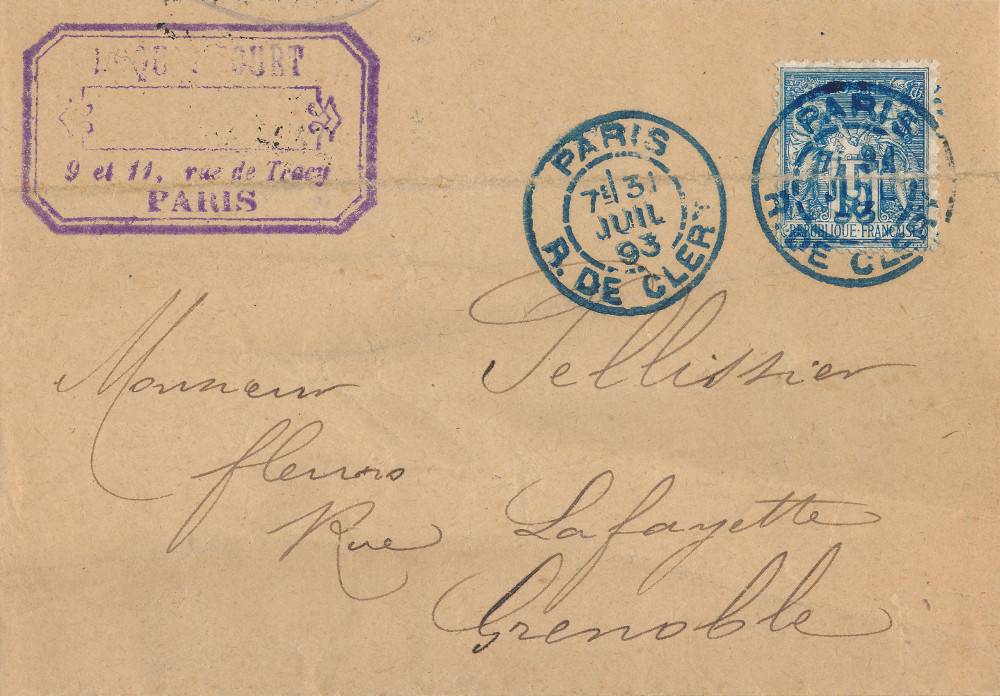 9 et 11, rue de Tracy
PARIS
PARIS
7E 31
JUIL
93
R. DE CLERY
PARIS
R. DE CLERY
15
REPUBLIQUE FRANCAISE
Monsieur Pellissier
fleurs
Rue Lafayette
Grenoble